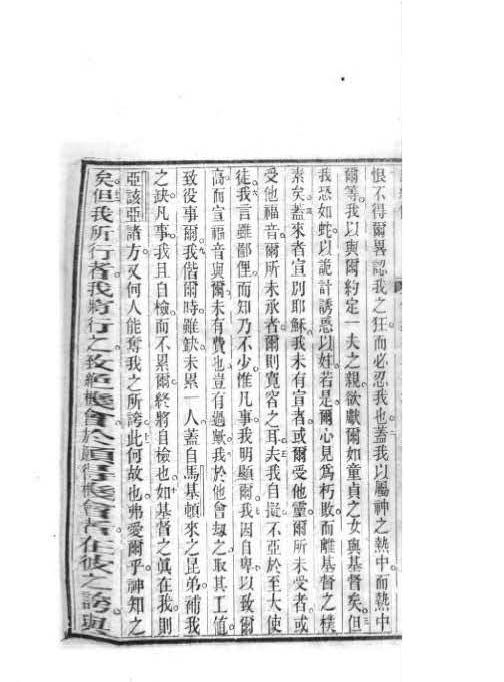 恨不得爾畧認我之狂而必忍我也蓋我以屬神之熱中而熱中
爾等我以與爾約定一夫之親欲獻爾如童貞之女與基督矣但
我恐如蛇以詭計誘惑以奸若是爾心見爲朽敗而離基督之樸
素矣蓋來者宣別耶穌我未有宣者或爾受他靈爾所未受者或
受他福音爾所未承者爾則寬容之耳夫我自擬不亞於至大使
徒我言雖鄙俚而知乃不少惟凡事我明顯爾我因自卑以致爾
高而宣福音與爾未有費也豈有過歟我於他會刦之取其工值
致役事爾我偕爾時雖缺未累一人蓋自馬基頓來之昆弟補我
之缺凡事我且自檢而不累爾終將自檢也如基督之眞在我則
亞該亞諸方又何人能奪我之所誇此何故也弗愛爾乎神知之
矣但我所行者我將行之致絕機會於願得機會在彼之誇與